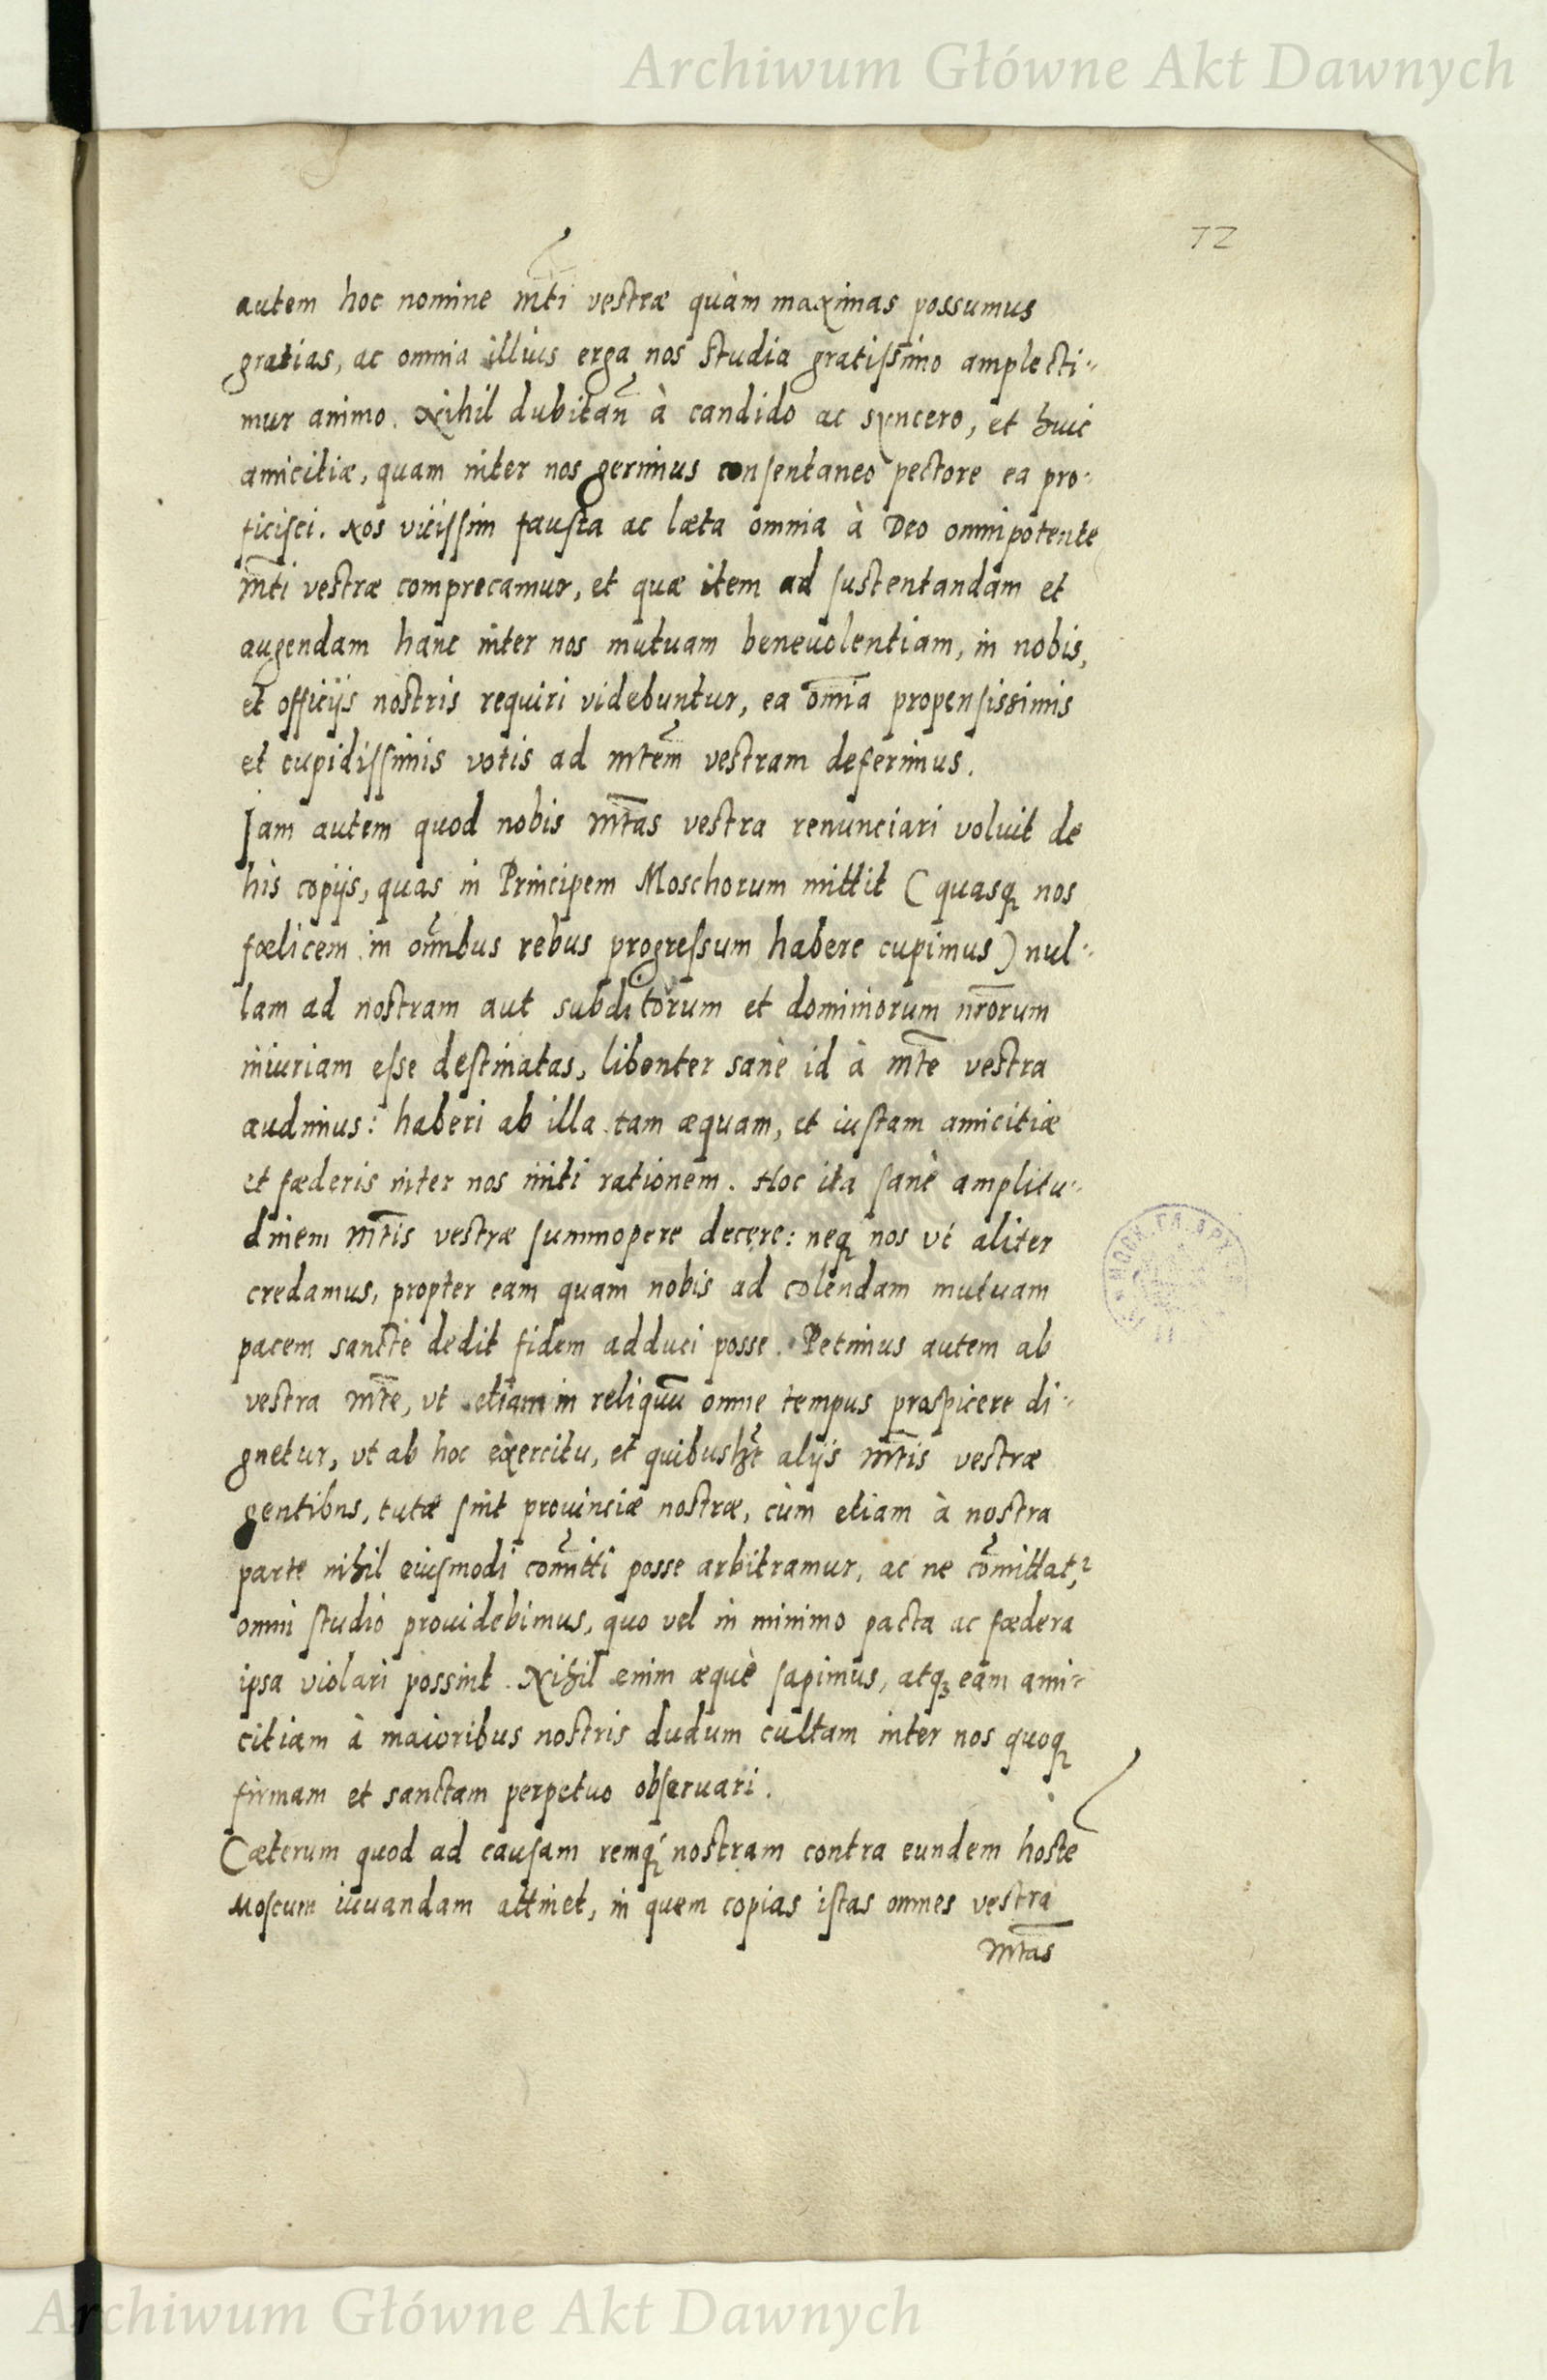 Archiwum Główne Akt Dawnych
72
autem hoc nomine mti vestræ quàm maximas possumus
gratias, ac omnia illius erga nos studia gratissimo amplecti-
mur animo. Nihil dubitan̄ à candido ac syncero, et huic
amicitiæ, quam inter nos gerimus consentaneo pectore ea pro-
ficisci. Nos vicissim fausta ac læta omnia à Deo omnipotente
m̄ti vestræ comprecamur, et quæ item ad sustentandam et
augendam hanc inter nos mutuam beneuolentiam, in nobis,
et officijs nostris requiri videbuntur, ea om̄ia propensissimis
et cupidissimis votis ad mtem̄ vestram deferimus.
Jam autem quod nobis m̄tas vestra renunciari voluit de
his copijs, quas in Principem Moschorum mittit (quasq nos
fœlicem in om̄ibus rebus progressum habere cupimus) nul-
lam ad nostram aut subditorum et dominiorum nr̄orum
iniuriam esse destinatas, libenter sanè id à m̄te vestra
audimus: haberi ab illa tam æquam, et iustam amicitiæ
et fæderis inter nos initi rationem. Hoc ita sanè amplitu-
dinem m̄tis vestræ summopere decere: neq nos vt aliter
credamus, propter eam quam nobis ad colendam mutuam
pacem sanctè dedit fidem adduci posse. Petimus autem ab
vestra m̄te, vt etiam in reliquū omne tempus prospicere di-
gnetur, vt ab hoc exercitu, et quibusht̄ alijs m̄tis vestræ
gentibus, tutæ sint prouinciæ nostræ, cùm etiam à nostra
parte nihil eiusmodi com̄itti posse arbitramur, ac ne com̄ittat,
omni studio prouidebimus, quo vel in minimo pacta ac fædera
ipsa violari possint. Nihil enim æquè sapimus, atq eam ami-
citiam à maioribus nostris dudum cultam inter nos quoq
firmam et sanctam perpetuo obseruari.
Cæterum quod ad causam remq nostram contra eundem hoste
Moscum iuuandam attinet, in quem copias istas omnes vestra
m̄tas
Archiwum Główne Akt Dawnych